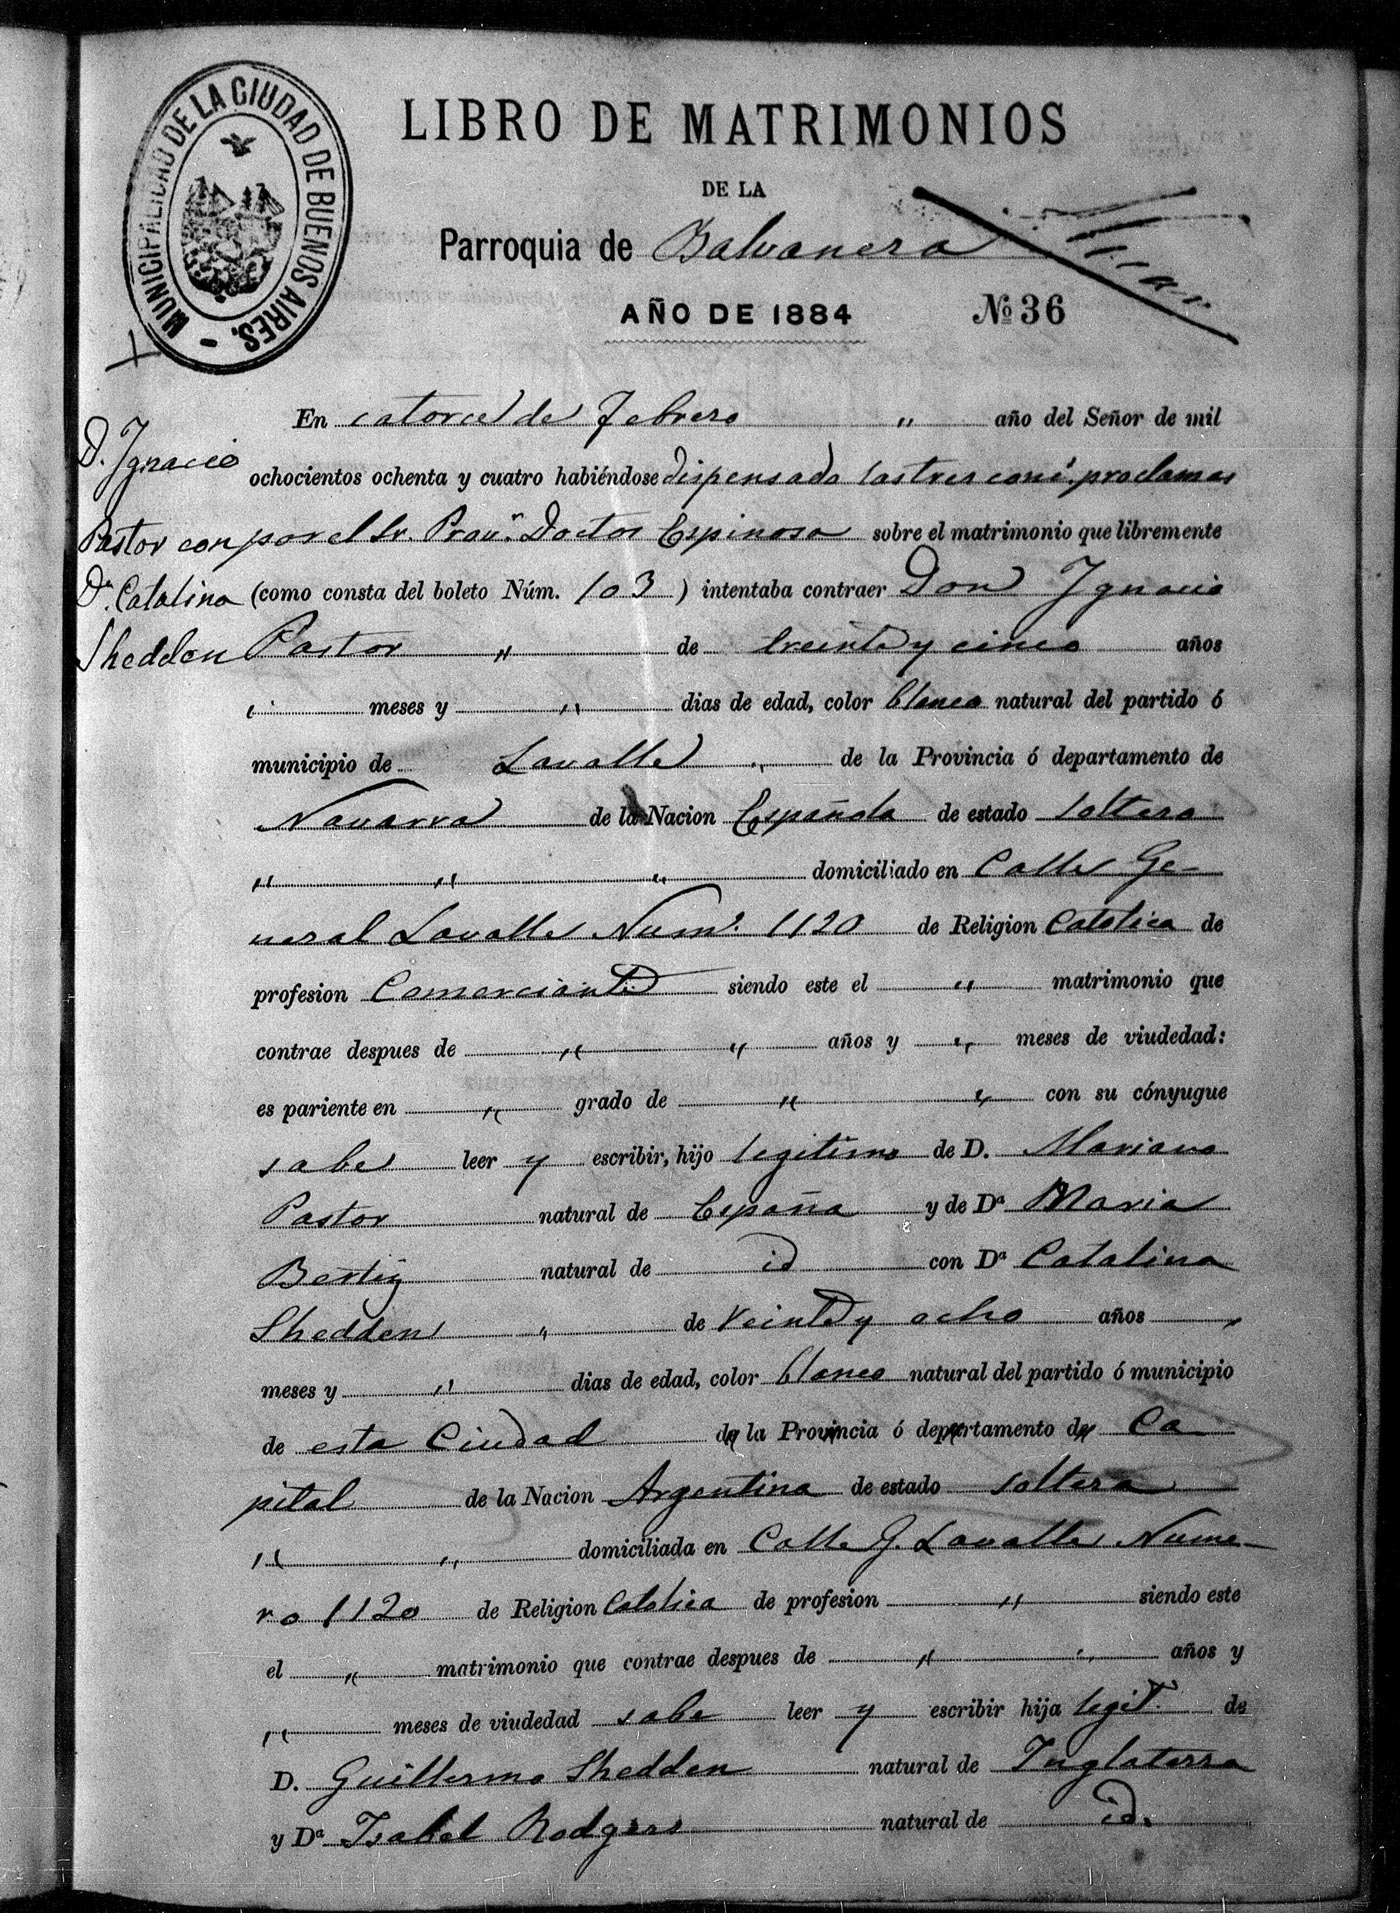 MUNICIPALIDAD DE LA CIUDAD DE BUENOS AIRES.
LIBRO DE MATRIMONIOS
DE LA
Parroquia de Balvanera
AÑO DE 1884 № 36
D. Ignacio
Pastor con
Dª. Catalina
Shedden
En catorce de Febrero " año del Señor de mil
ochocientos ochenta y cuatro habiéndose dispensado las tres proclamas
por el Sr. Prov. Doctor Espinosa sobre el matrimonio que libremente
(como consta del boleto Núm. 103 ) intentaba contraer Don Ignacio
Pastor " de treinta y cinco años
" meses y " dias de edad, color blanco natural del partido ó
municipio de Lavalle " de la Provincia ó departamento de
Navarra de la Nacion Española de estado soltero
" " " domiciliado en Calle Ge-
neral Lavalle Numº. 1120 de Religion Catolica de
profesion Comerciante siendo este el " matrimonio que
contrae despues de " " años y " meses de viudedad:
es pariente en " grado de " " con su cónyugue
sabe leer y escribir, hijo legitimo de D. Mariano
Pastor natural de España y de Dª Maria
natural de id con Dª Catalina
Shedden " de Veinte y ocho años "
meses y " dias de edad, color blanco natural del partido ó municipio
de esta Ciudad de la Provincia ó departamento de Ca
pital de la Nacion Argentina de estado soltera
" " domiciliada en Calle G. Lavalle Nume-
ro 1120 de Religion Catolica de profesion " siendo este
el " matrimonio que contrae despues de " " años y
" meses de viudedad sabe leer y escribir hija legit. de
D. Guillermo Shedden natural de Inglaterra
y Dª Isabel Rodgers natural de id.